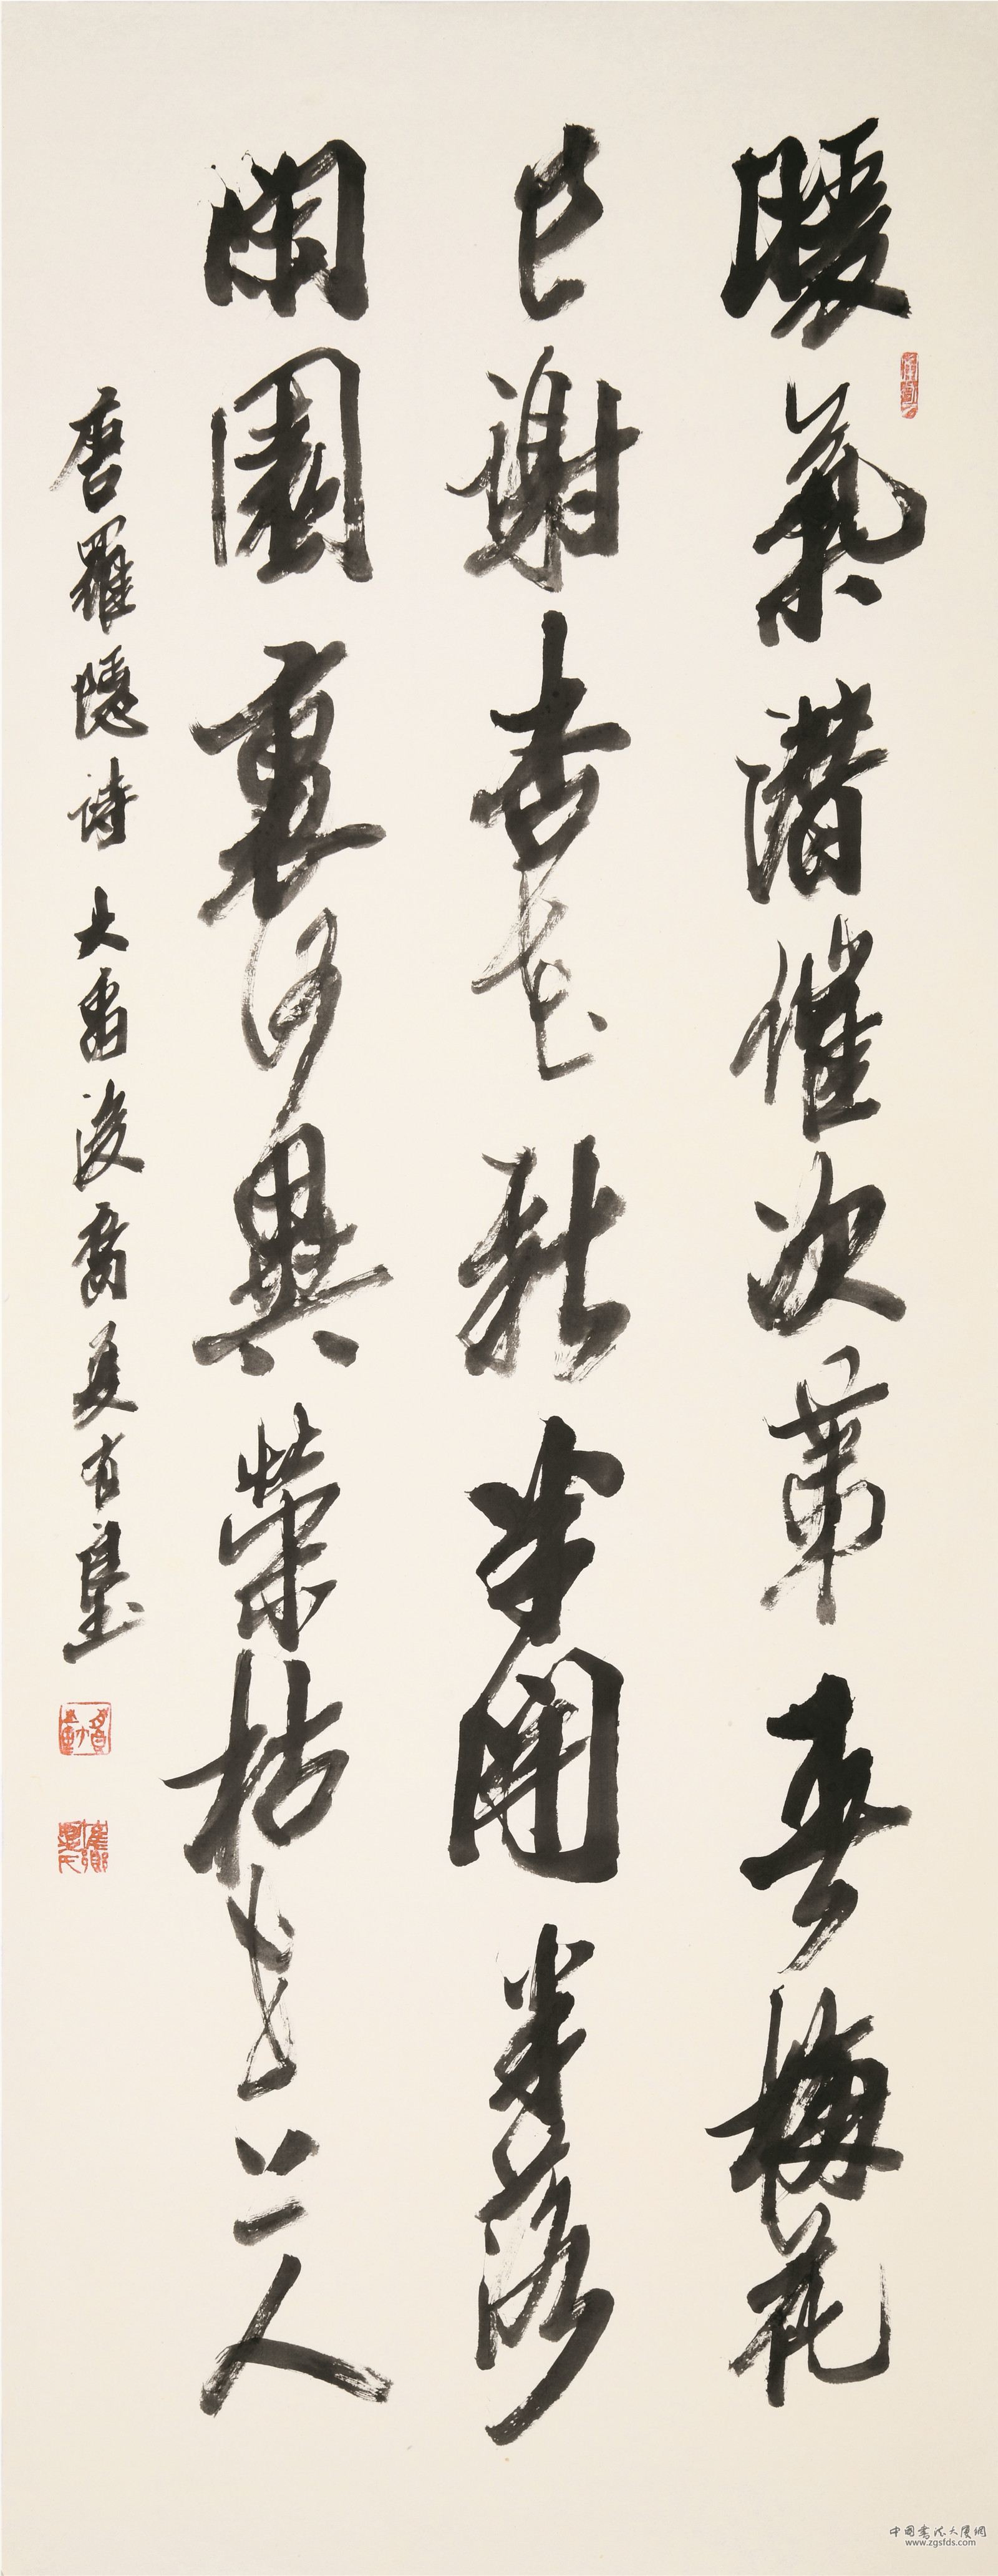 暖氣潛催次第春梅花
已謝杏花新半開半落
閑園裏何異榮枯世上人
唐羅隱詩 大禹後裔夏有
中國書法大廈網
www.zgsfds.com